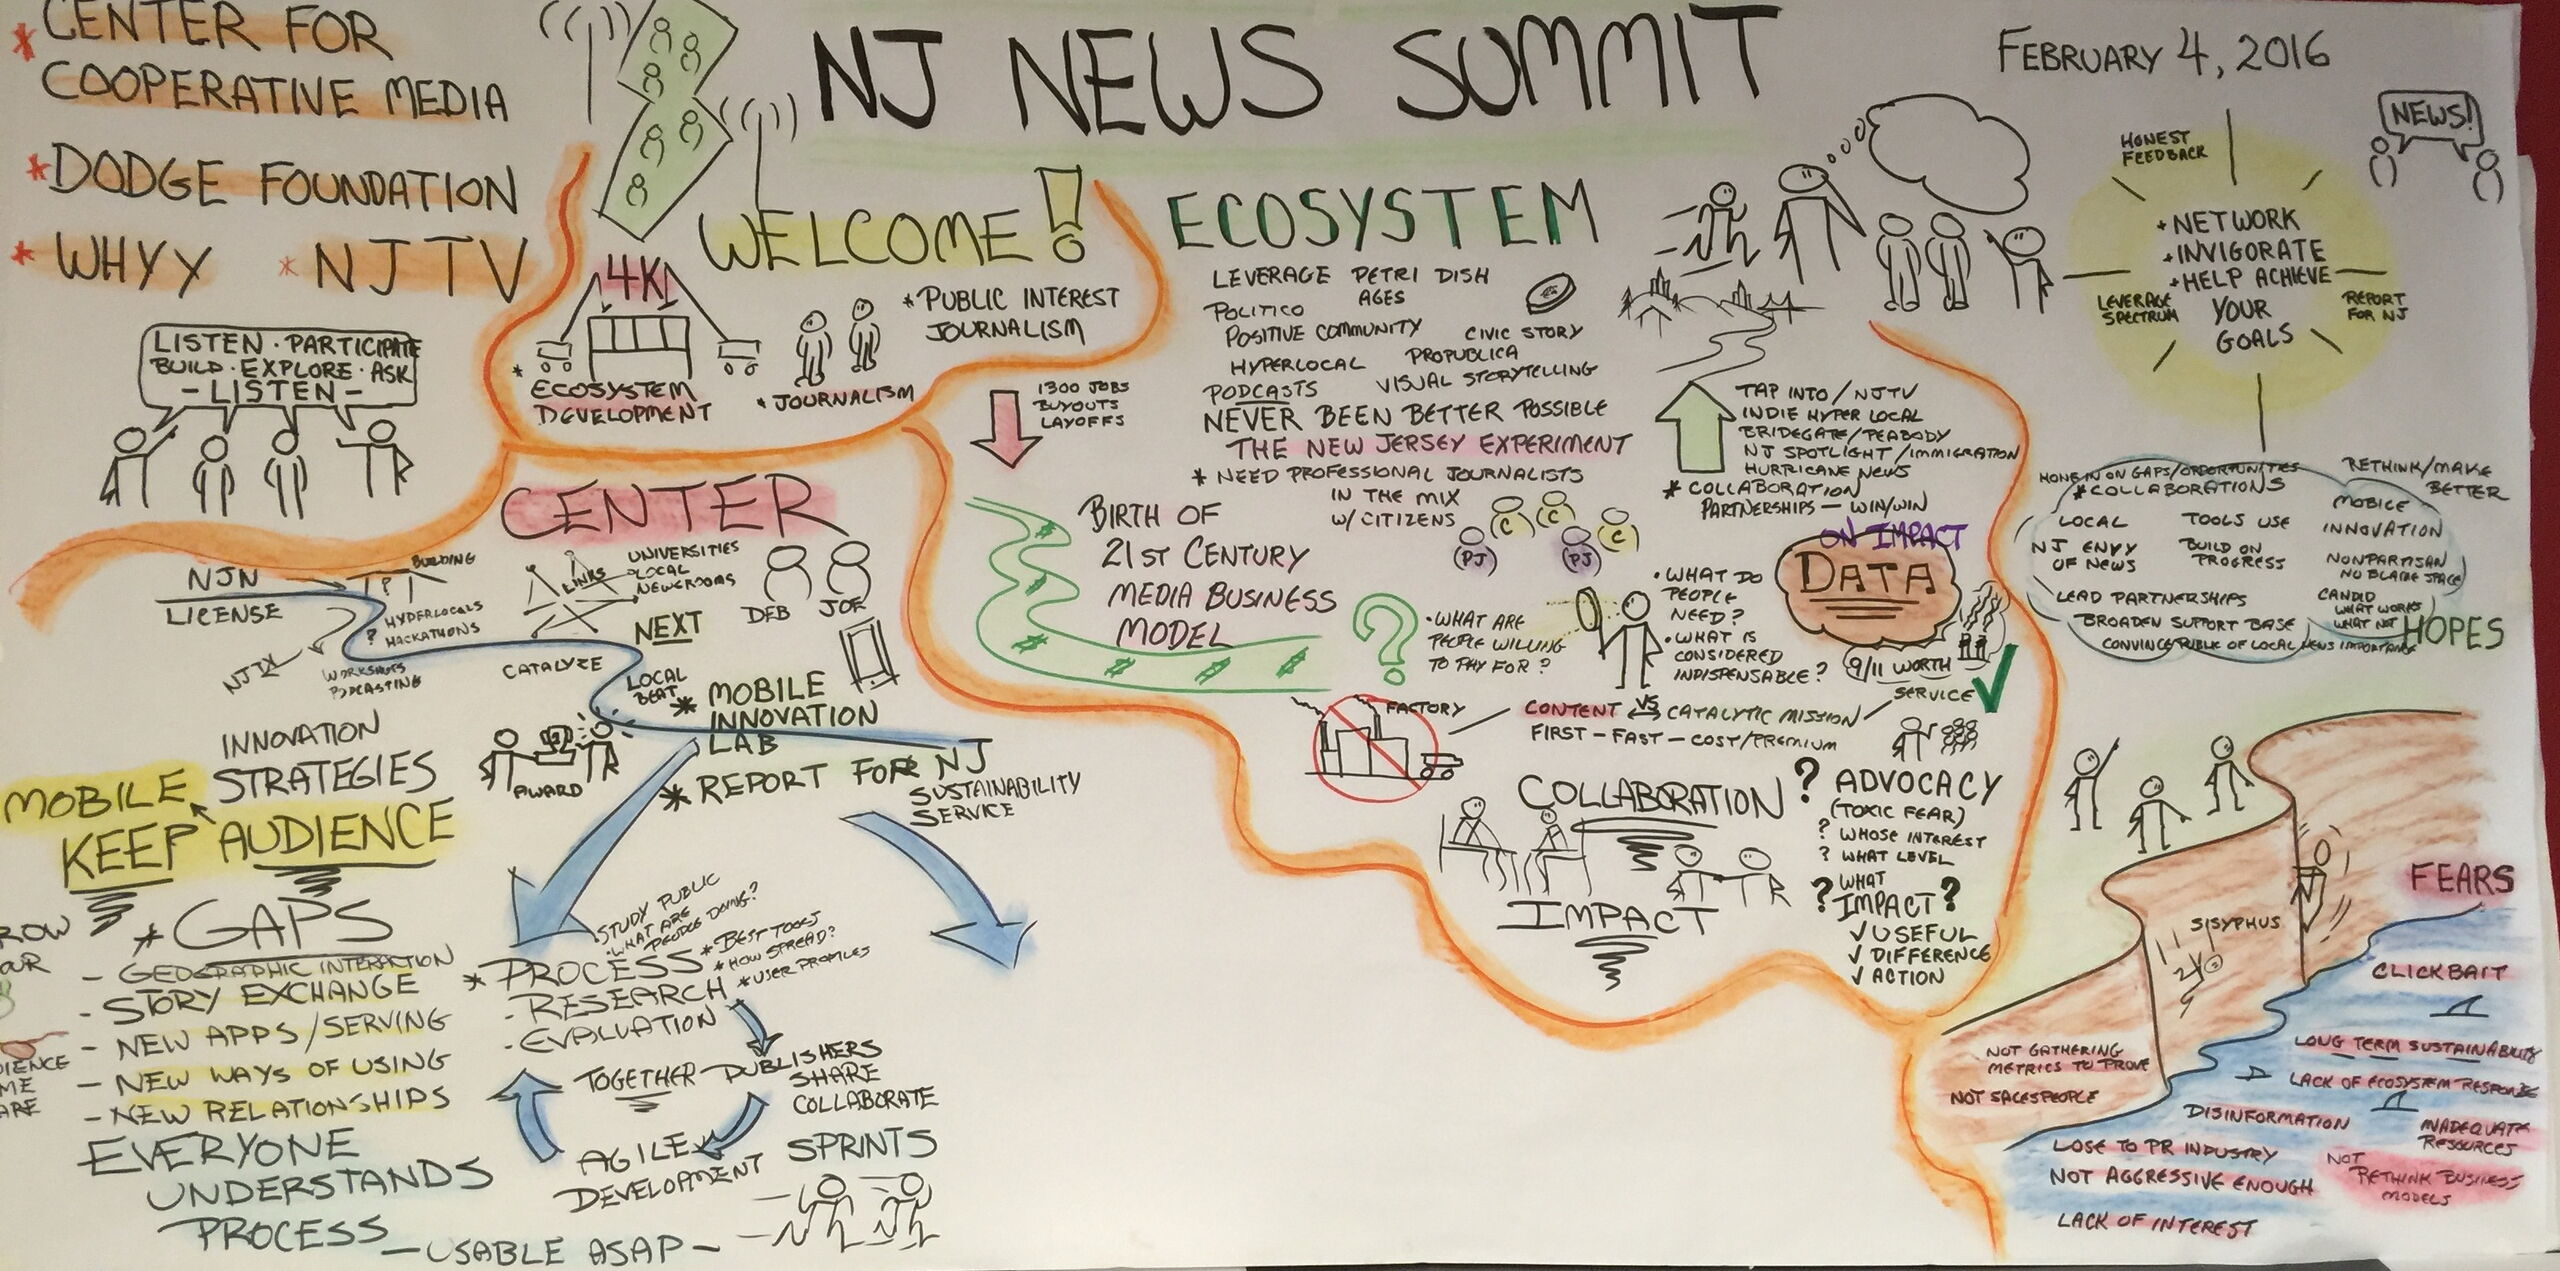 * CENTER FOR
COOPERATIVE MEDIA
* DODGE FOUNDATION
* WHYY * NJTV
LISTEN · PARTICIPATE
BUILD · EXPLORE · ASK
- LISTEN -
NJ NEWS SUMMIT
FEBRUARY 4, 2016
WELCOME!
4K
* ECOSYSTEM
DEVELOPMENT
* JOURNALISM
* PUBLIC INTEREST
JOURNALISM
1300 JOBS
BUYOUTS
LAYOFFS
ECOSYSTEM
LEVERAGE PETRI DISH
AGES
POLITICO
POSITIVE COMMUNITY
CIVIC STORY
HYPERLOCAL
PROPUBLICA
PODCASTS
VISUAL STORYTELLING
NEVER BEEN BETTER POSSIBLE
THE NEW JERSEY EXPERIMENT
* NEED PROFESSIONAL JOURNALISTS
IN THE MIX
W/ CITIZENS
C
C
C
PJ
PJ
TAP INTO / NJTV
INDIE HYPER LOCAL
BRIDEGATE/PEABODY
NJ SPOTLIGHT / IMMIGRATION
HURRICANE NEWS
* COLLABORATION
PARTNERSHIPS — WIN/WIN
ON IMPACT
DATA
BIRTH OF
21ST CENTURY
MEDIA BUSINESS
MODEL
?
· WHAT ARE
PEOPLE WILLING
TO PAY FOR?
· WHAT DO
PEOPLE
NEED?
· WHAT IS
CONSIDERED
INDISPENSABLE?
9/11 WORTH
SERVICE ✓
FACTORY
CONTENT VS CATALYTIC MISSION
FIRST - FAST - COST/PREMIUM
COLLABORATION
IMPACT
? ADVOCACY
(TOXIC FEAR)
? WHOSE INTEREST
? WHAT LEVEL
WHAT
? IMPACT?
✓ USEFUL
✓ DIFFERENCE
✓ ACTION
NEWS!
HONEST
FEEDBACK
+ NETWORK
+ INVIGORATE
+ HELP ACHIEVE
YOUR
GOALS
LEVERAGE
SPECTRUM
REPORT
FOR NJ
HONE IN ON GAPS/OPPORTUNITIES
* COLLABORATIONS
RETHINK/MAKE
BETTER
MOBILE
INNOVATION
LOCAL
NJ ENVY
OF NEWS
TOOLS USE
BUILD ON
PROGRESS
NONPARTISAN
NO BLAME SPACE
LEAD PARTNERSHIPS
CANDID
WHAT WORKS
WHAT NOT
BROADEN SUPPORT BASE
CONVINCE PUBLIC OF LOCAL NEWS IMPORTANCE
HOPES
FEARS
SISYPHUS
CLICKBAIT
NOT GATHERING
METRICS TO PROVE
NOT SALESPEOPLE
LONG TERM SUSTAINABILITY
LACK OF ECOSYSTEM RESPONSE
DISINFORMATION
INADEQUATE
RESOURCES
LOSE TO PR INDUSTRY
NOT
RETHINK BUSINESS
MODELS
NOT AGGRESSIVE ENOUGH
LACK OF INTEREST
CENTER
NJN
LICENSE
?
BUILDING
HYPERLOCALS
? HACKATHONS
NJTV
WORKSHOPS
PODCASTING
LINKS
UNIVERSITIES
LOCAL
NEWSROOMS
CATALYZE
DEB JOE
NEXT
LOCAL
BEAT
* MOBILE
INNOVATION
LAB
* REPORT FOR NJ
SUSTAINABILITY
SERVICE
AWARD
INNOVATION
STRATEGIES
MOBILE
KEEP AUDIENCE
* GAPS
- GEOGRAPHIC INTERACTION
- STORY EXCHANGE
- NEW APPS / SERVING
- NEW WAYS OF USING
- NEW RELATIONSHIPS
EVERYONE
UNDERSTANDS
PROCESS
- USABLE ASAP -
· STUDY PUBLIC
· WHAT ARE
PEOPLE DOING?
* PROCESS
- RESEARCH
- EVALUATION
* BEST TOOLS
* HOW SPREAD?
* USER PROFILES
TOGETHER
PUBLISHERS
SHARE
COLLABORATE
AGILE
DEVELOPMENT
SPRINTS